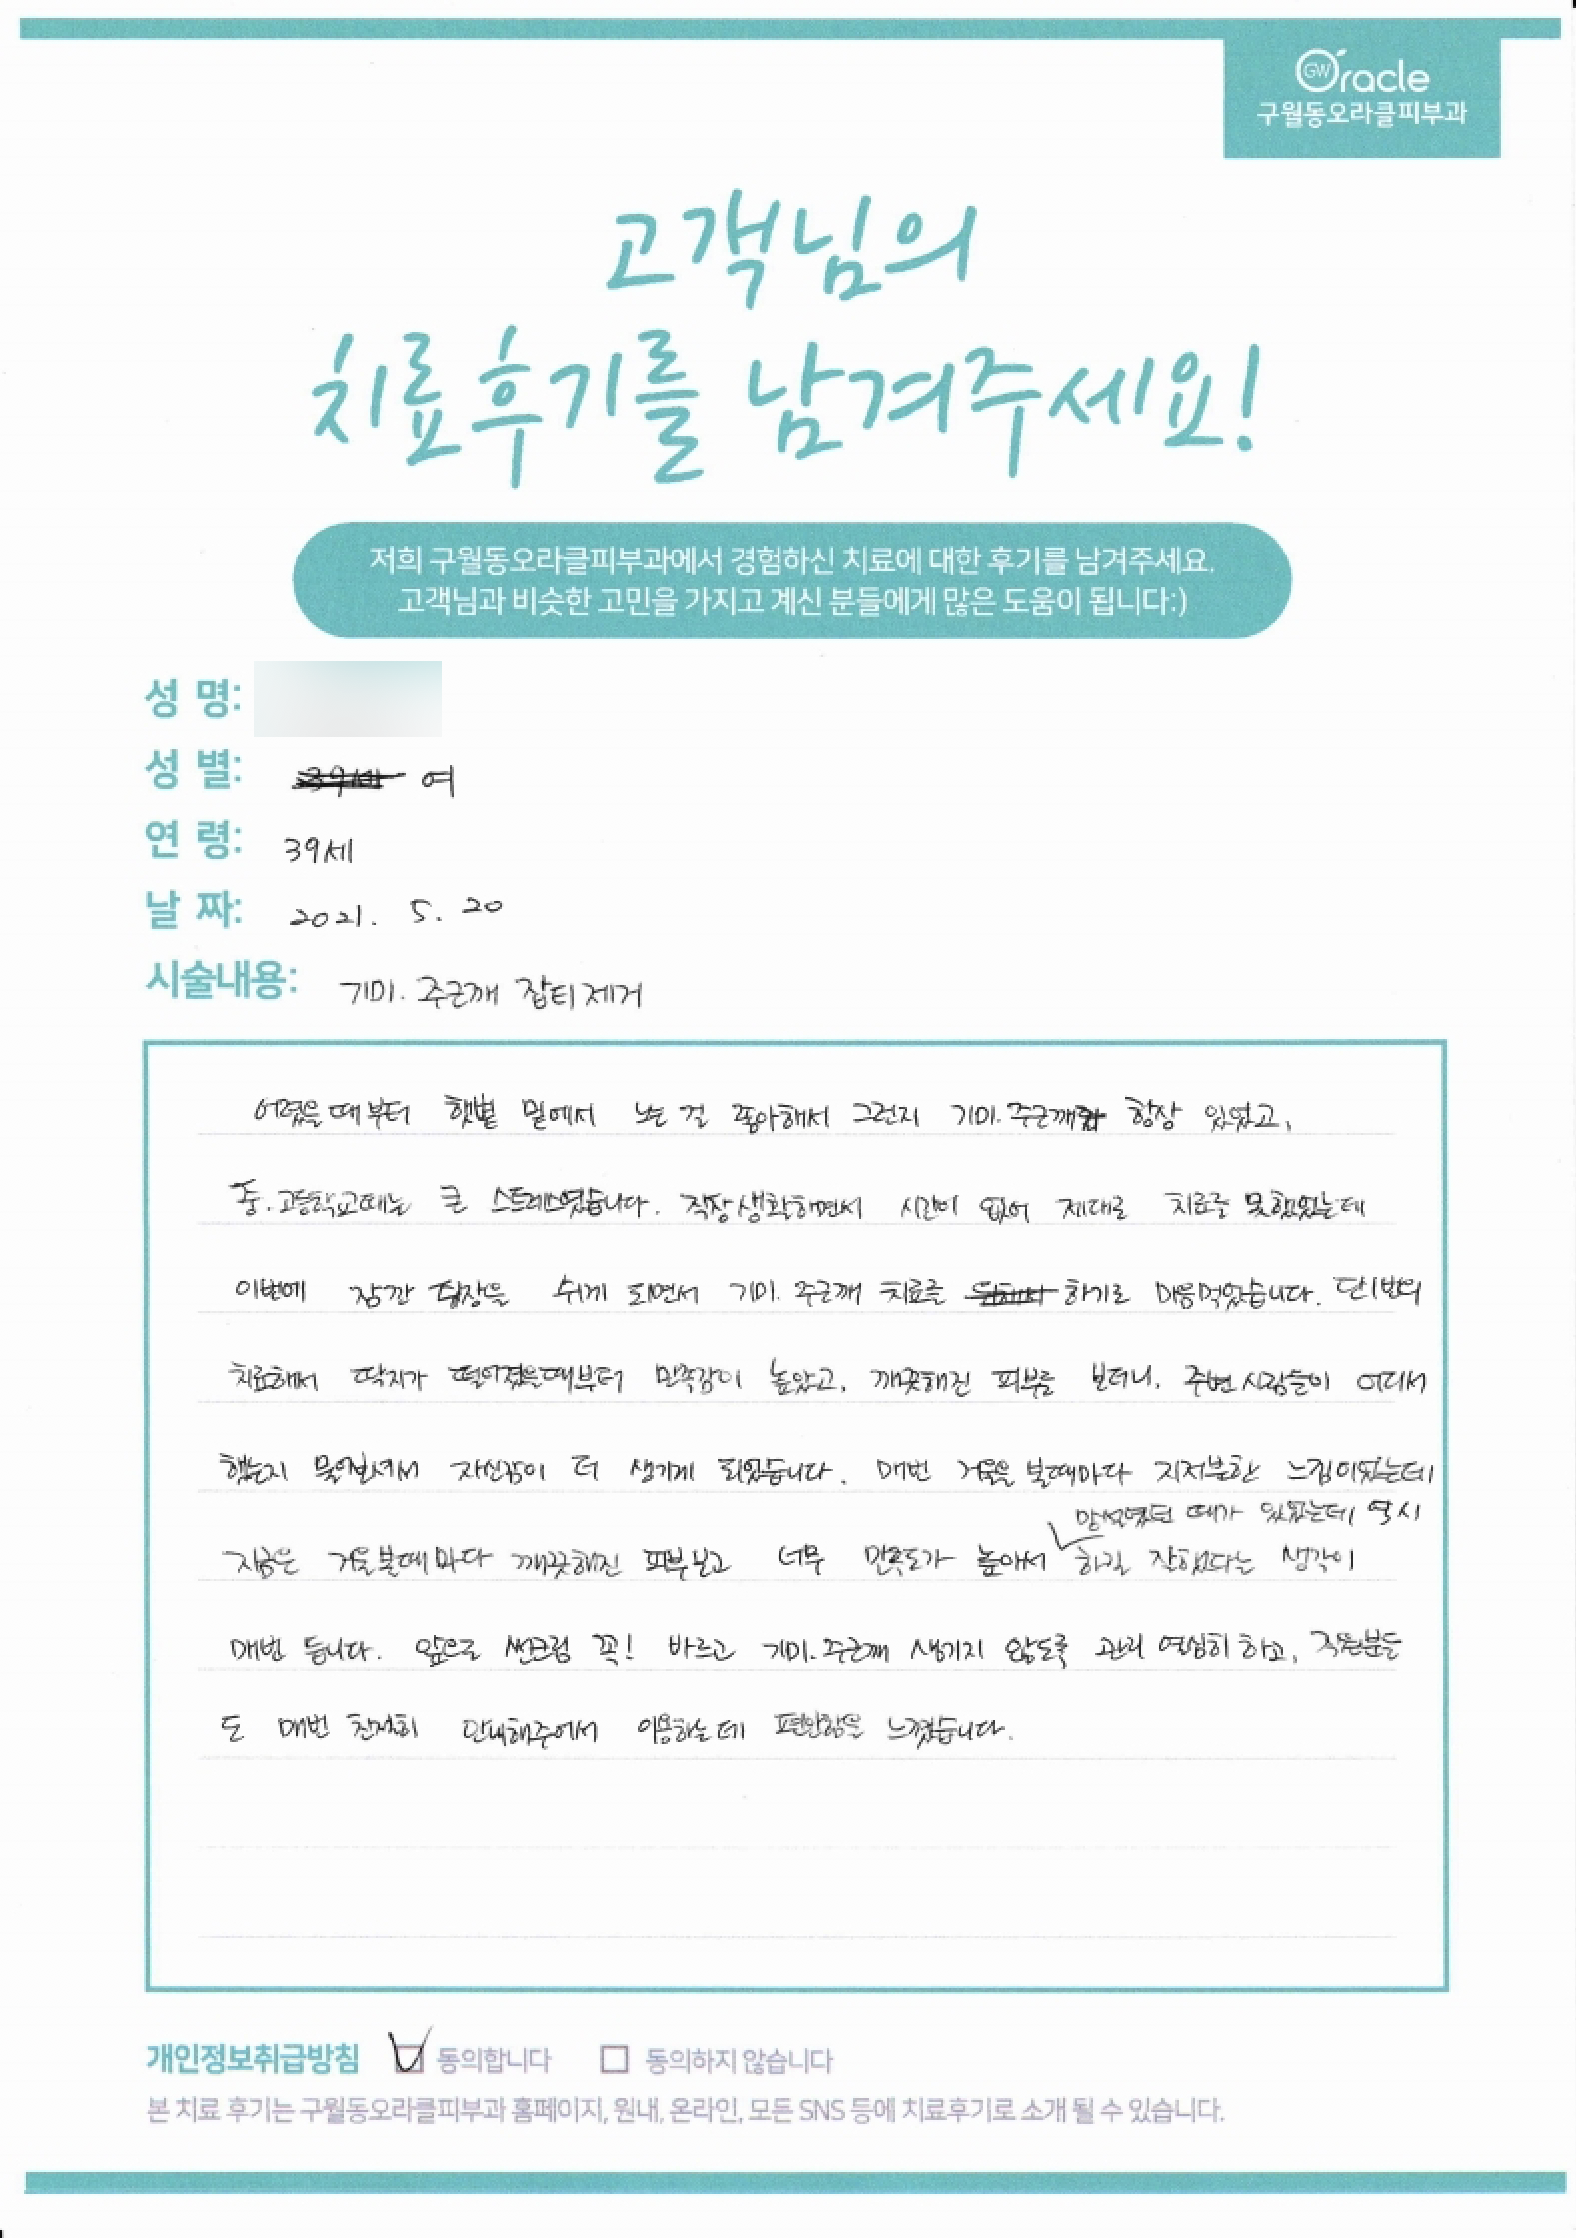 GW Oracle
구월동오라클피부과
고객님의
치료후기를 남겨주세요!
저희 구월동오라클피부과에서 경험하신 치료에 대한 후기를 남겨주세요.
고객님과 비슷한 고민을 가지고 계신 분들에게 많은 도움이 됩니다:)
성 명:
성 별: 39세 여
연 령: 39세
날 짜: 2021. 5. 20
시술내용: 기미. 주근깨 잡티제거
어렸을때부터 햇볕 밑에서 노는 걸 좋아해서 그런지 기미.주근깨가 항상 있었고,
중.고등학교때는 큰 스트레스였습니다. 직장생활하면서 시간이 없어 제대로 치료를 못했었는데
이번에 잠깐 직장을 쉬게 되면서 기미. 주근깨 치료를 하기로 마음먹었습니다. 단1번의
치료해서 딱지가 떨어졌을때부터 만족감이 높았고, 깨끗해진 피부를 보더니, 주변사람들이 어디서
했는지 물어보셔서 자신감이 더 생기게 되었습니다. 매번 거울을 볼때마다 지저분한 느낌이었는데
망설였던 때가 있었는데 역시
지금은 거울볼때마다 깨끗해진 피부보고 너무 만족도가 높아서 하길 잘했다는 생각이
매번 듭니다. 앞으로 썬크림 꼭! 바르고 기미.주근깨 생기지 않도록 관리 열심히 하고, 직원분들
도 매번 친절히 안내해주어서 이용하는데 편안함을 느꼈습니다.
개인정보취급방침 동의합니다 동의하지 않습니다
본 치료 후기는 구월동오라클피부과 홈페이지, 원내, 온라인, 모든 SNS 등에 치료후기로 소개 될 수 있습니다.